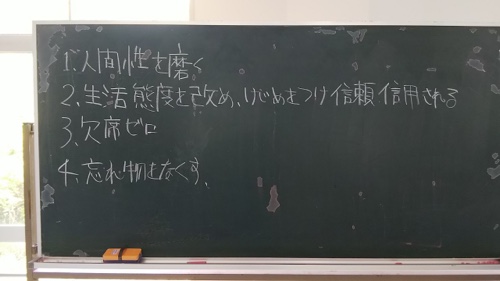 1.人間性を磨く
2.生活態度を改め、けじめをつけ信頼信用される
3.欠席ゼロ
4.忘れ物をなくす、